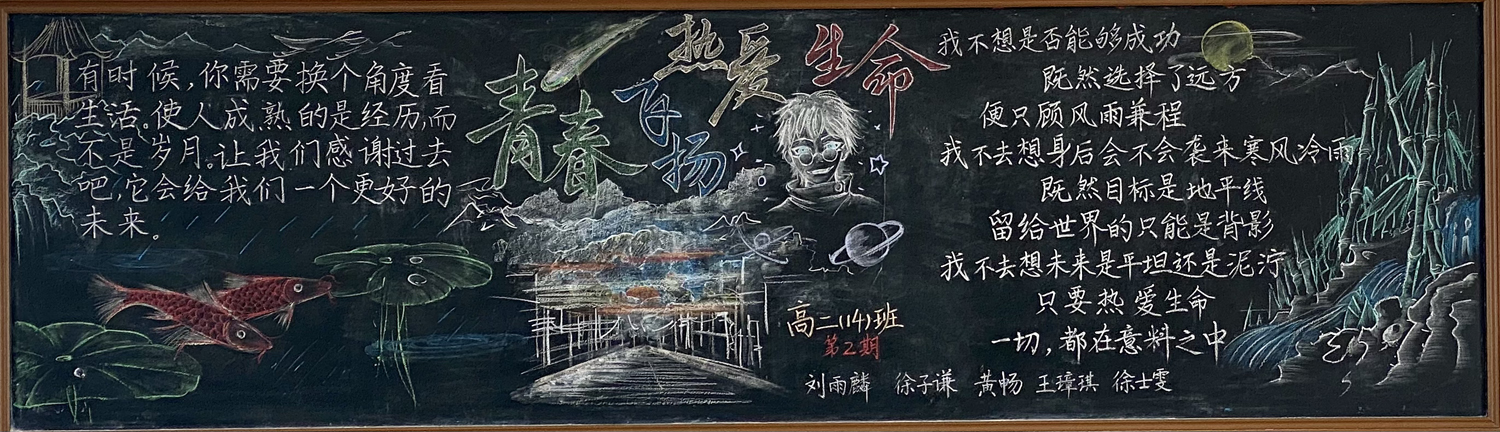 有时候，你需要换个角度看
生活。使人成熟的是经历，而
不是岁月。让我们感谢过去
吧，它会给我们一个更好的
未来。
青春飞扬
热爱生命
高二(14)班
第2期
我不想是否能够成功
既然选择了远方
便只顾风雨兼程
我不去想身后会不会袭来寒风冷雨
既然目标是地平线
留给世界的只能是背影
我不去想未来是平坦还是泥泞
只要热爱生命
一切，都在意料之中
刘雨麟 徐子谦 黄畅 王璋琪 徐士雯